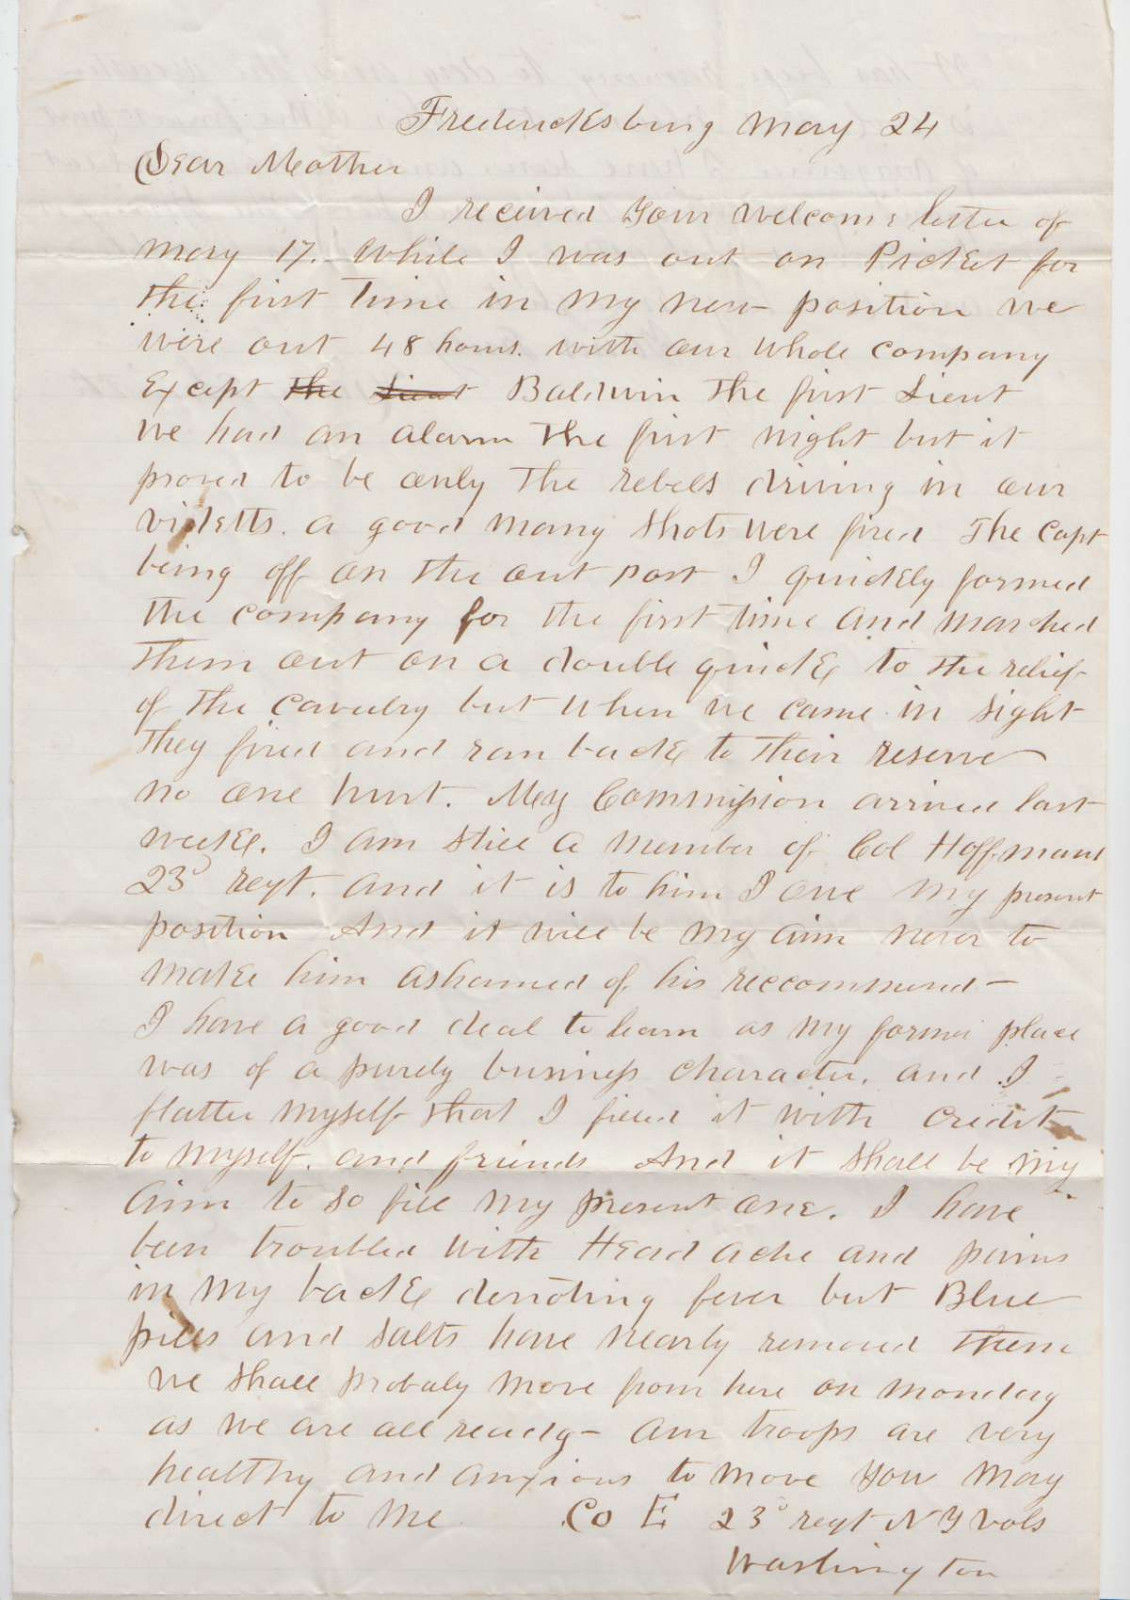 Fredericksburg May 24
Dear Mother
I received your welcome letter of
May 17. While I was out on Picket for
the first Time in my new position we
were out 48 hours. with our whole company
Except the Lieut Baldwin The first Lieut
we had an alarm The first night but it
proved to be only The rebels driving in our
videtts. a good many shots were fired The Capt
being off on the out post I quickly formed
the company for the first time and marched
Them out on a double quick to the relief
of the Cavalry but when we came in sight
They fired and ran back to their reserve
no one hurt. My Commission arrived last
week. I am still a member of Col Hoffmans
23d regt. and it is to him I owe my present
position And it will be my aim never to
make him ashamed of his reccommend-
I have a good deal to learn as my former place
was of a purely business character. and I
flatter myself that I filled it with credit
to myself. and friends And it shall be my
aim to so fill my present one. I have
been troubled with Head ache and pains
in my back denoting fever but Blue
pills and salts have nearly removed them
we shall probaly move from here on monday
as we are all ready- our troops are very
healthy and anxious to move You may
direct to me Co E 23d regt N Y Vols
Washington